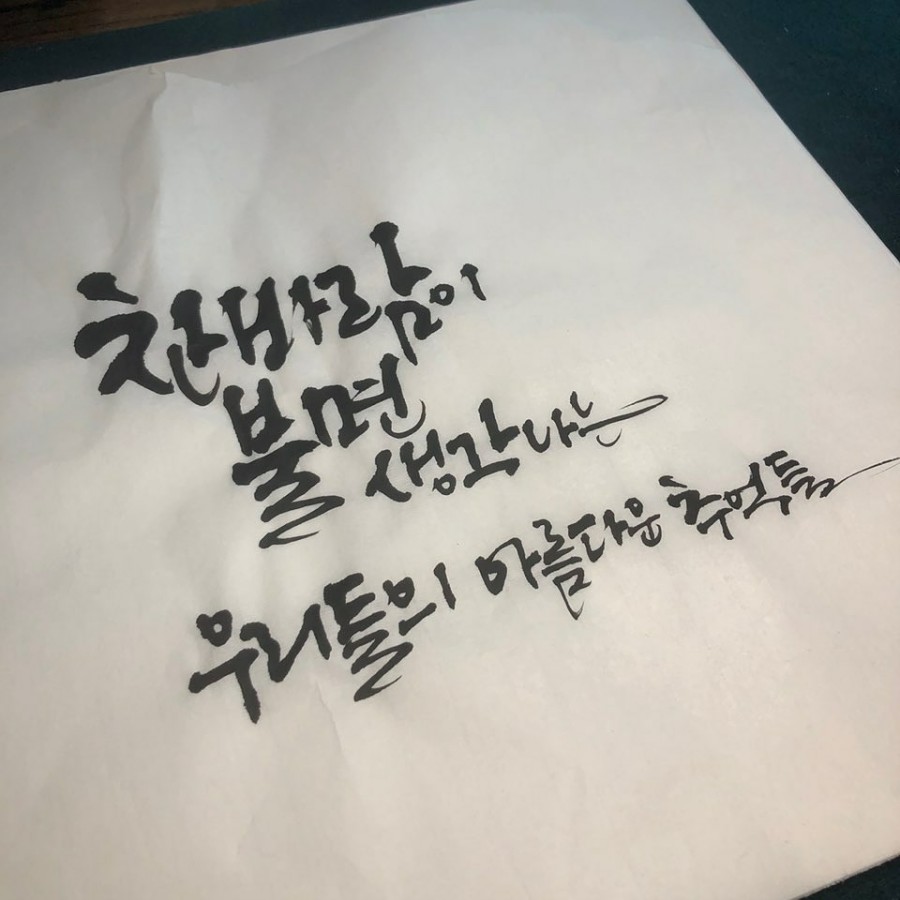 찬바람이
불면
생각나는
우리들의 아름다운 추억들